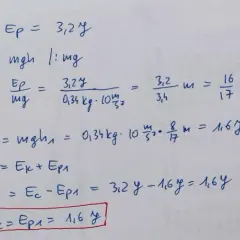 Ep = 3,2 J
mgh /: mg
Ep/mg = 3,2 J / 0,34 kg · 10 m/s² = 3,2/3,4 m = 16/17
= mgh₁ = 0,34 kg · 10 m/s² · 8/17 m = 1,6 J
= Ek + Ep1
= Ec - Ep1 = 3,2 J - 1,6 J = 1,6 J
= Ep1 = 1,6 J